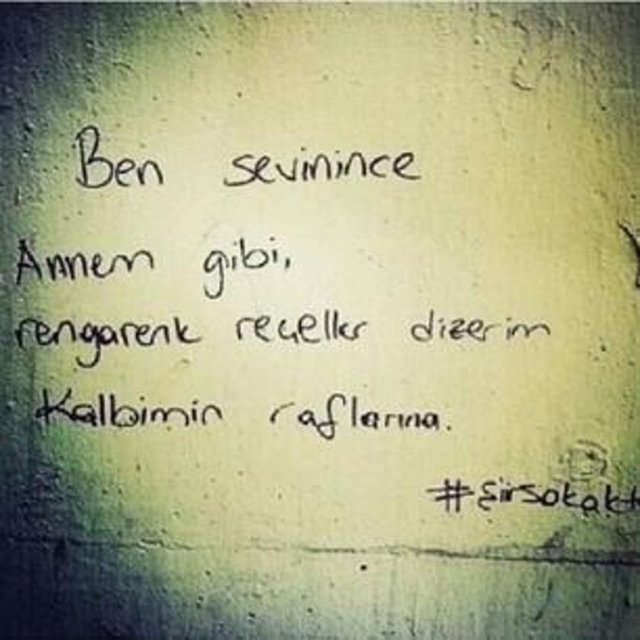 Ben sevinince
Annem gibi,
rengarenk reçeller dizerim
Kalbimin raflarına.
#şiirsokakt